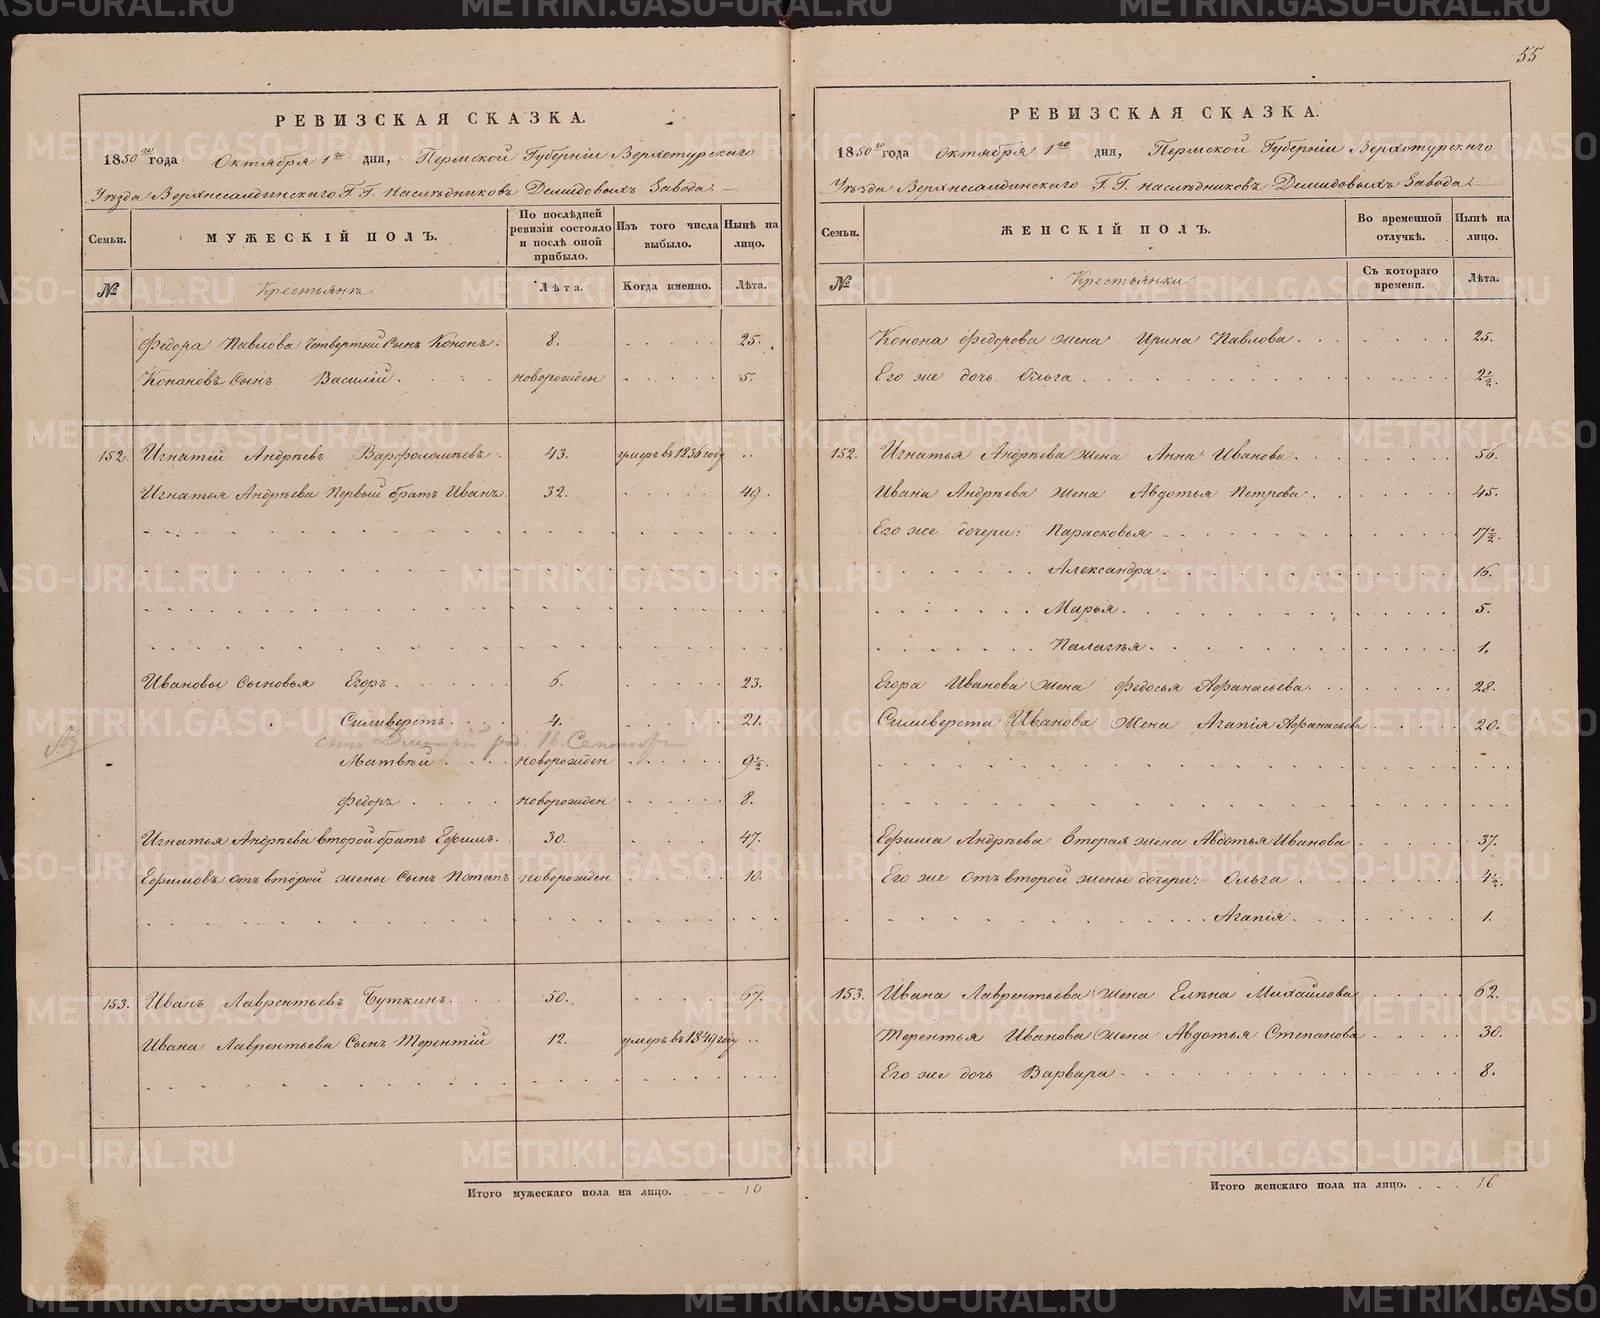 55
РЕВИЗСКАЯ СКАЗКА.
1850го года Октября 1го дня, Пермской Губерніи Верхотурскаго
Уѣзда Верхнесалдинскаго Г. Г. Наслѣдниковъ Демидовыхъ Завода
Семьи. МУЖЕСКІЙ ПОЛЪ. По послѣдней ревизіи состояло и послѣ оной прибыло. Изъ того числа выбыло. Нынѣ на лицо.
№ Крестьянъ Лѣта. Когда именно. Лѣта.
Федора Павлова Четвертый Сынъ Кононъ. 8. 25.
Кононовъ Сынъ Василій. новорожден 5.
152. Игнатій Андрѣевъ Варфоломѣевъ. 43. умеръ въ 1836 году
Игнатья Андрѣева Первый братъ Иванъ. 32. 49.
Ивановы Сыновья Егоръ 6. 23.
Силиверстъ. 4. 21.
сынъ Дмитрій род. 16.
Матвѣй новорожден 9½.
Федоръ новорожден 8.
Игнатья Андрѣева второй братъ Ефимъ. 30. 47.
Ефимовъ отъ второй жены Сынъ Потапъ новорожден 10.
153. Иванъ Лаврентьевъ Буткинъ. 50. 67.
Ивана Лаврентьева Сынъ Терентій 12. умеръ въ 1849 году
Итого мужескаго пола на лицо. 10
РЕВИЗСКАЯ СКАЗКА.
1850го года Октября 1го дня, Пермской Губерніи Верхотурскаго
Уѣзда Верхнесалдинскаго Г. Г. наслѣдниковъ Демидовыхъ Завода
Семьи. ЖЕНСКІЙ ПОЛЪ. Во временной отлучкѣ. Нынѣ на лицо.
№ Крестьянки Съ котораго времени. Лѣта.
Конона Федорова жена Ирина Павлова. 25.
Его же дочь Ольга 2½.
152. Игнатья Андрѣева жена Анна Иванова. 56.
Ивана Андрѣева жена Авдотья Петрова. 45.
Его же дочери: Парасковья 17½.
Александра. 16.
Марья. 5.
Палагѣя. 1.
Егора Иванова жена Федосья Афанасьева. 28.
Силиверста Иванова жена Агапія Афанасьева 20.
Ефима Андрѣева Вторая жена Авдотья Иванова 37.
Его же Отъ второй жены дочери: Ольга 4½.
Агапія. 1.
153. Ивана Лаврентьева жена Елѣна Михайлова 62.
Терентья Иванова жена Авдотья Степанова 30.
Его же дочь Варвара 8.
Итого женскаго пола на лицо. 16
METRIKI.GASO-URAL.RU